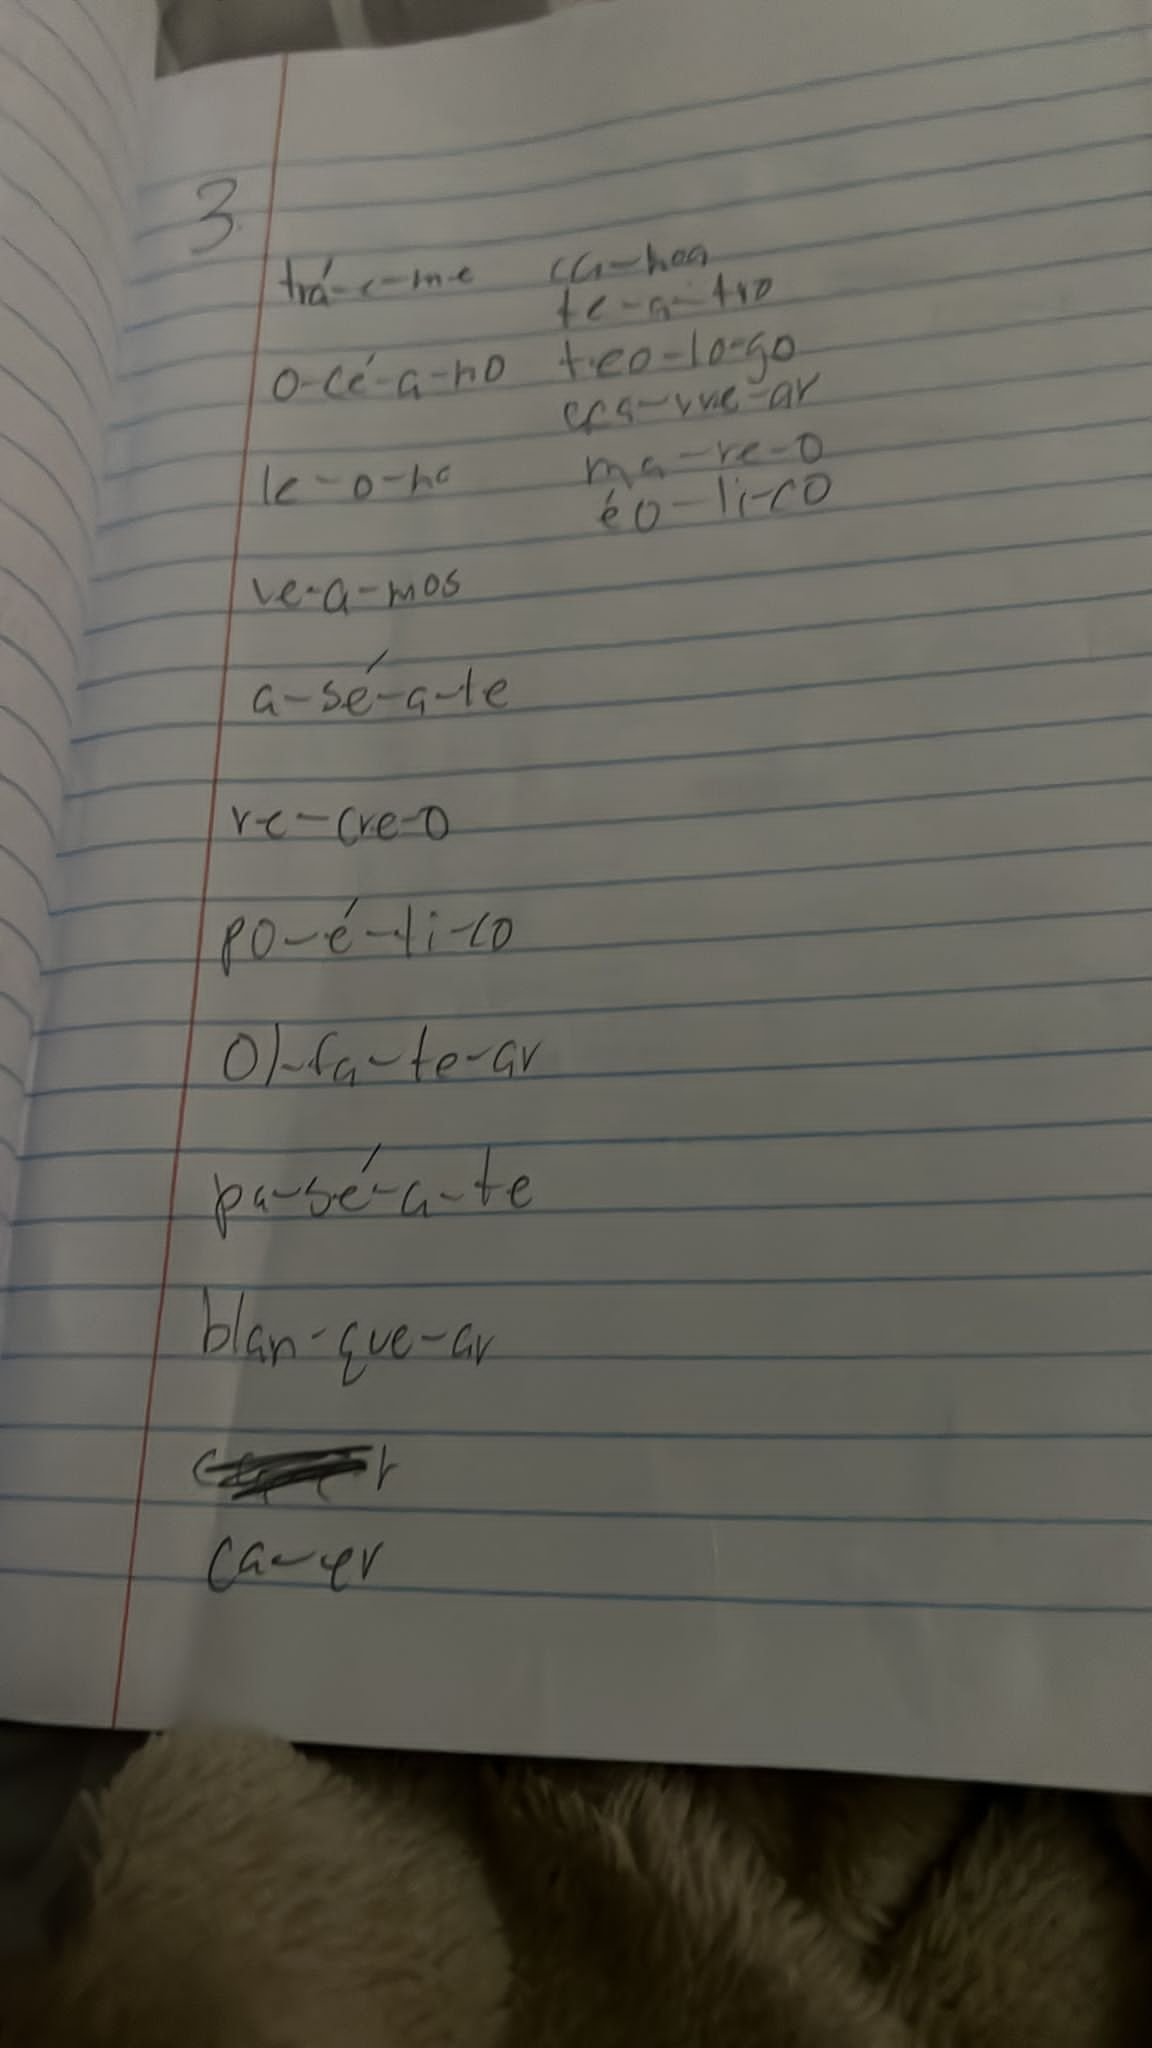 3.
trá-e-me
o-cé-a-no
le-o-na
ve-a-mos
a-sé-a-te
re-cre-o
po-é-ti-co
Ol-fa-te-ar
pa-sé-a-te
blan-que-ar
ca-er
ca-noa
te-a-tro
teo-lo-go
ma-re-o
éo-li-co